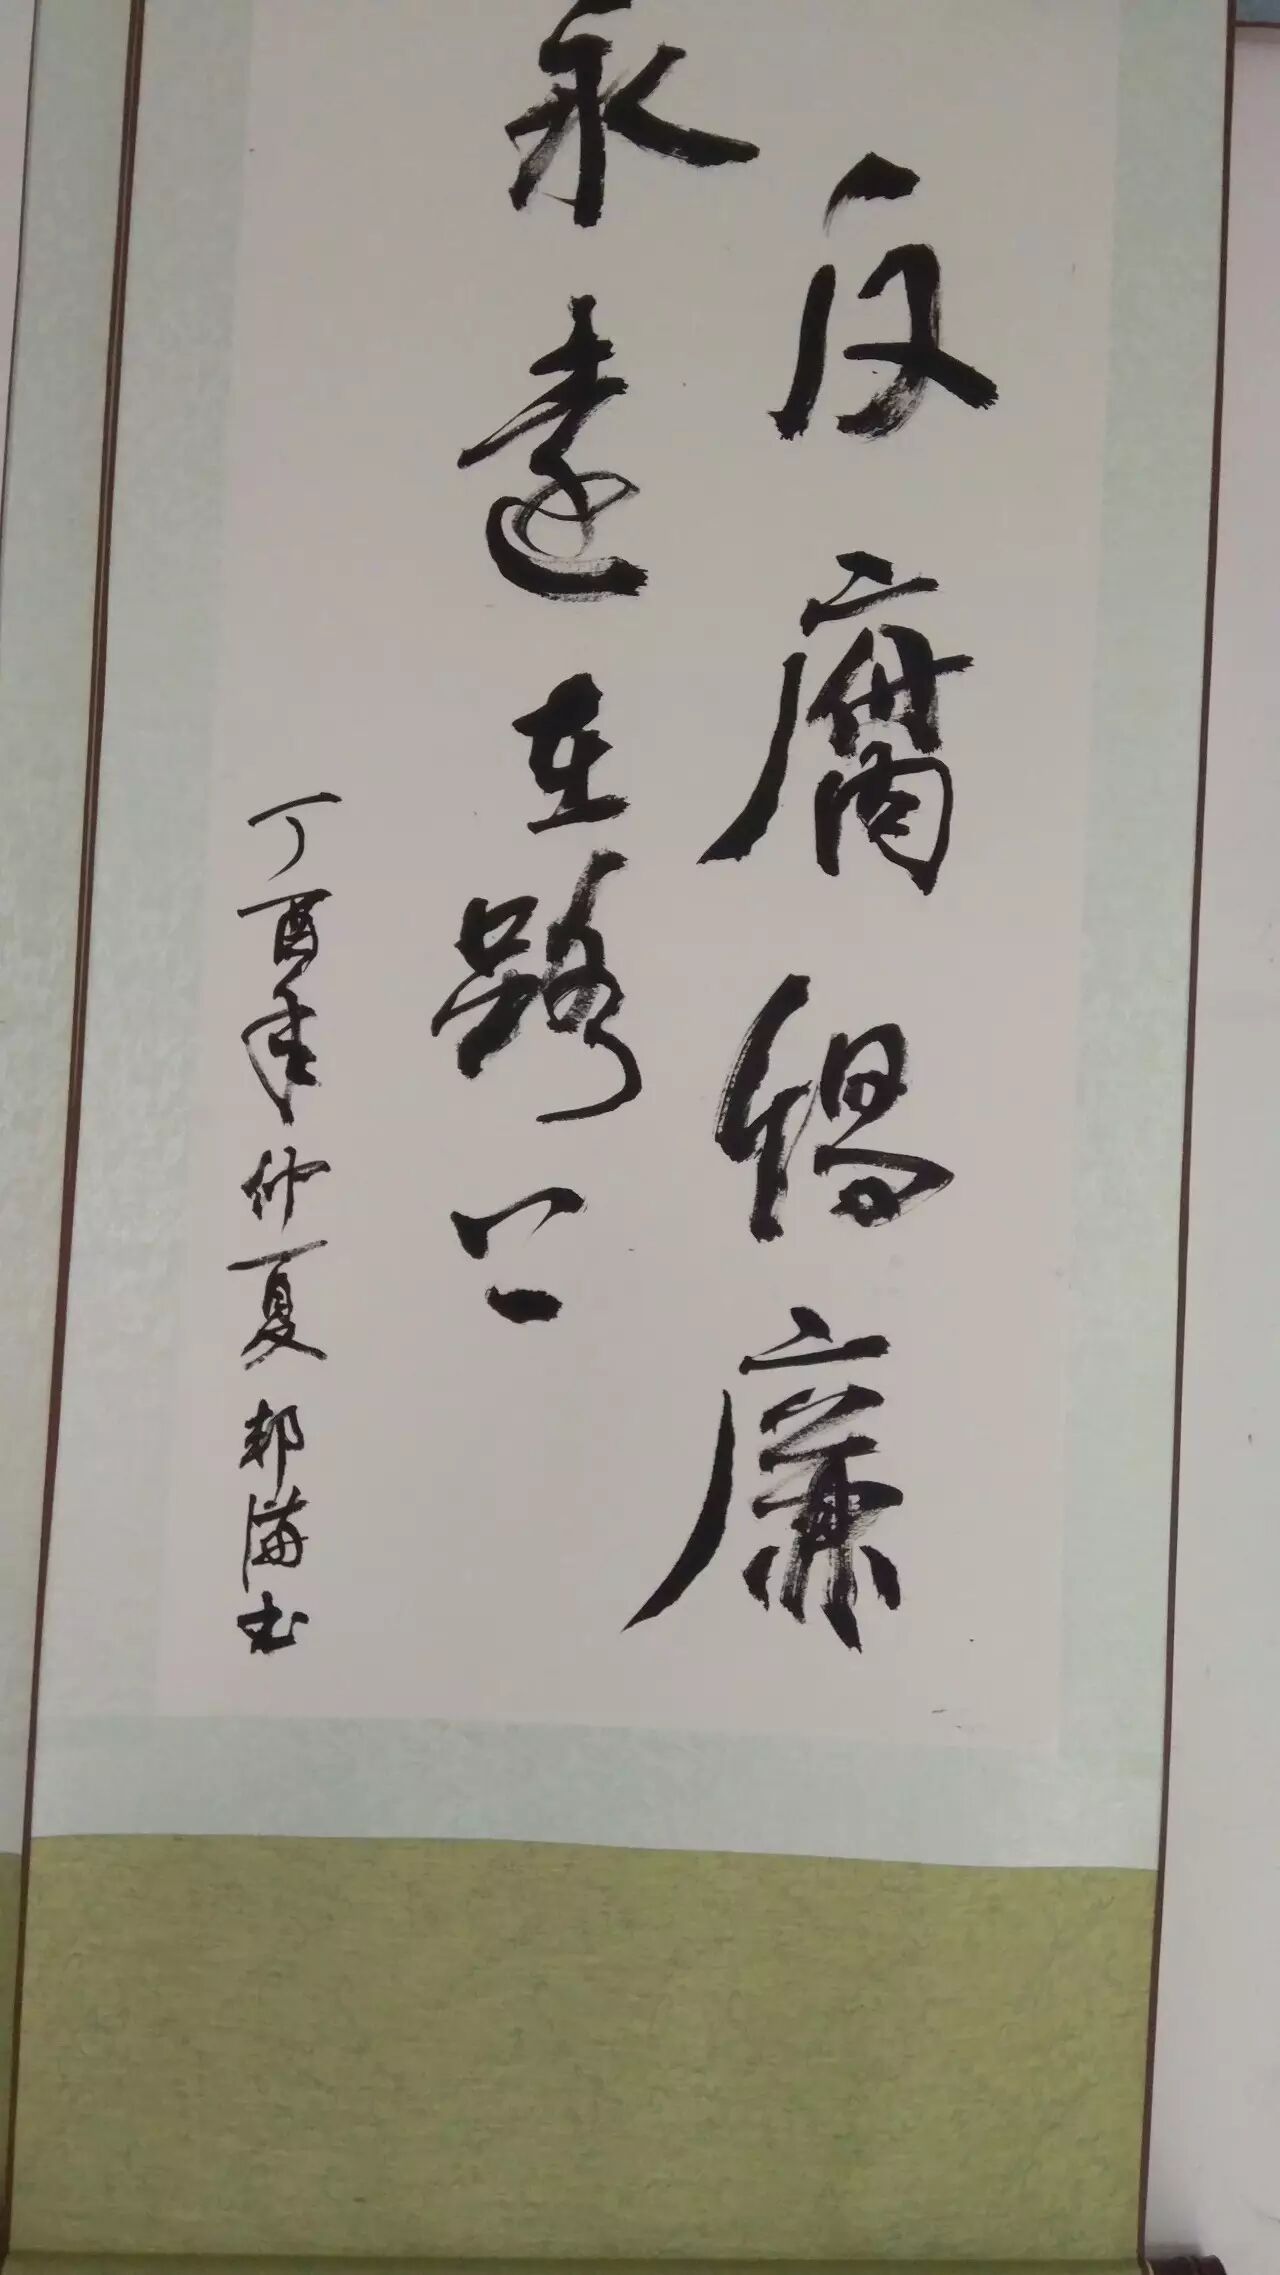 反腐倡廉
永远在路上
丁酉年仲夏 满书